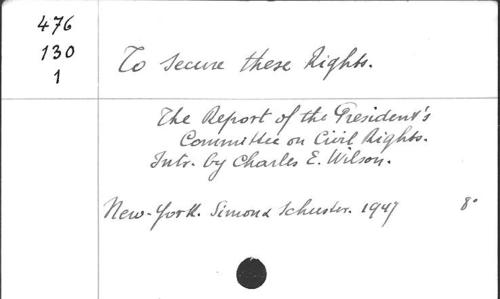 476
130
1
To secure these Rights.
The Report of the President's
Committee on Civil Rights.
Intr. by Charles E. Wilson.
New-York. Simon & Schuster. 1947 8°